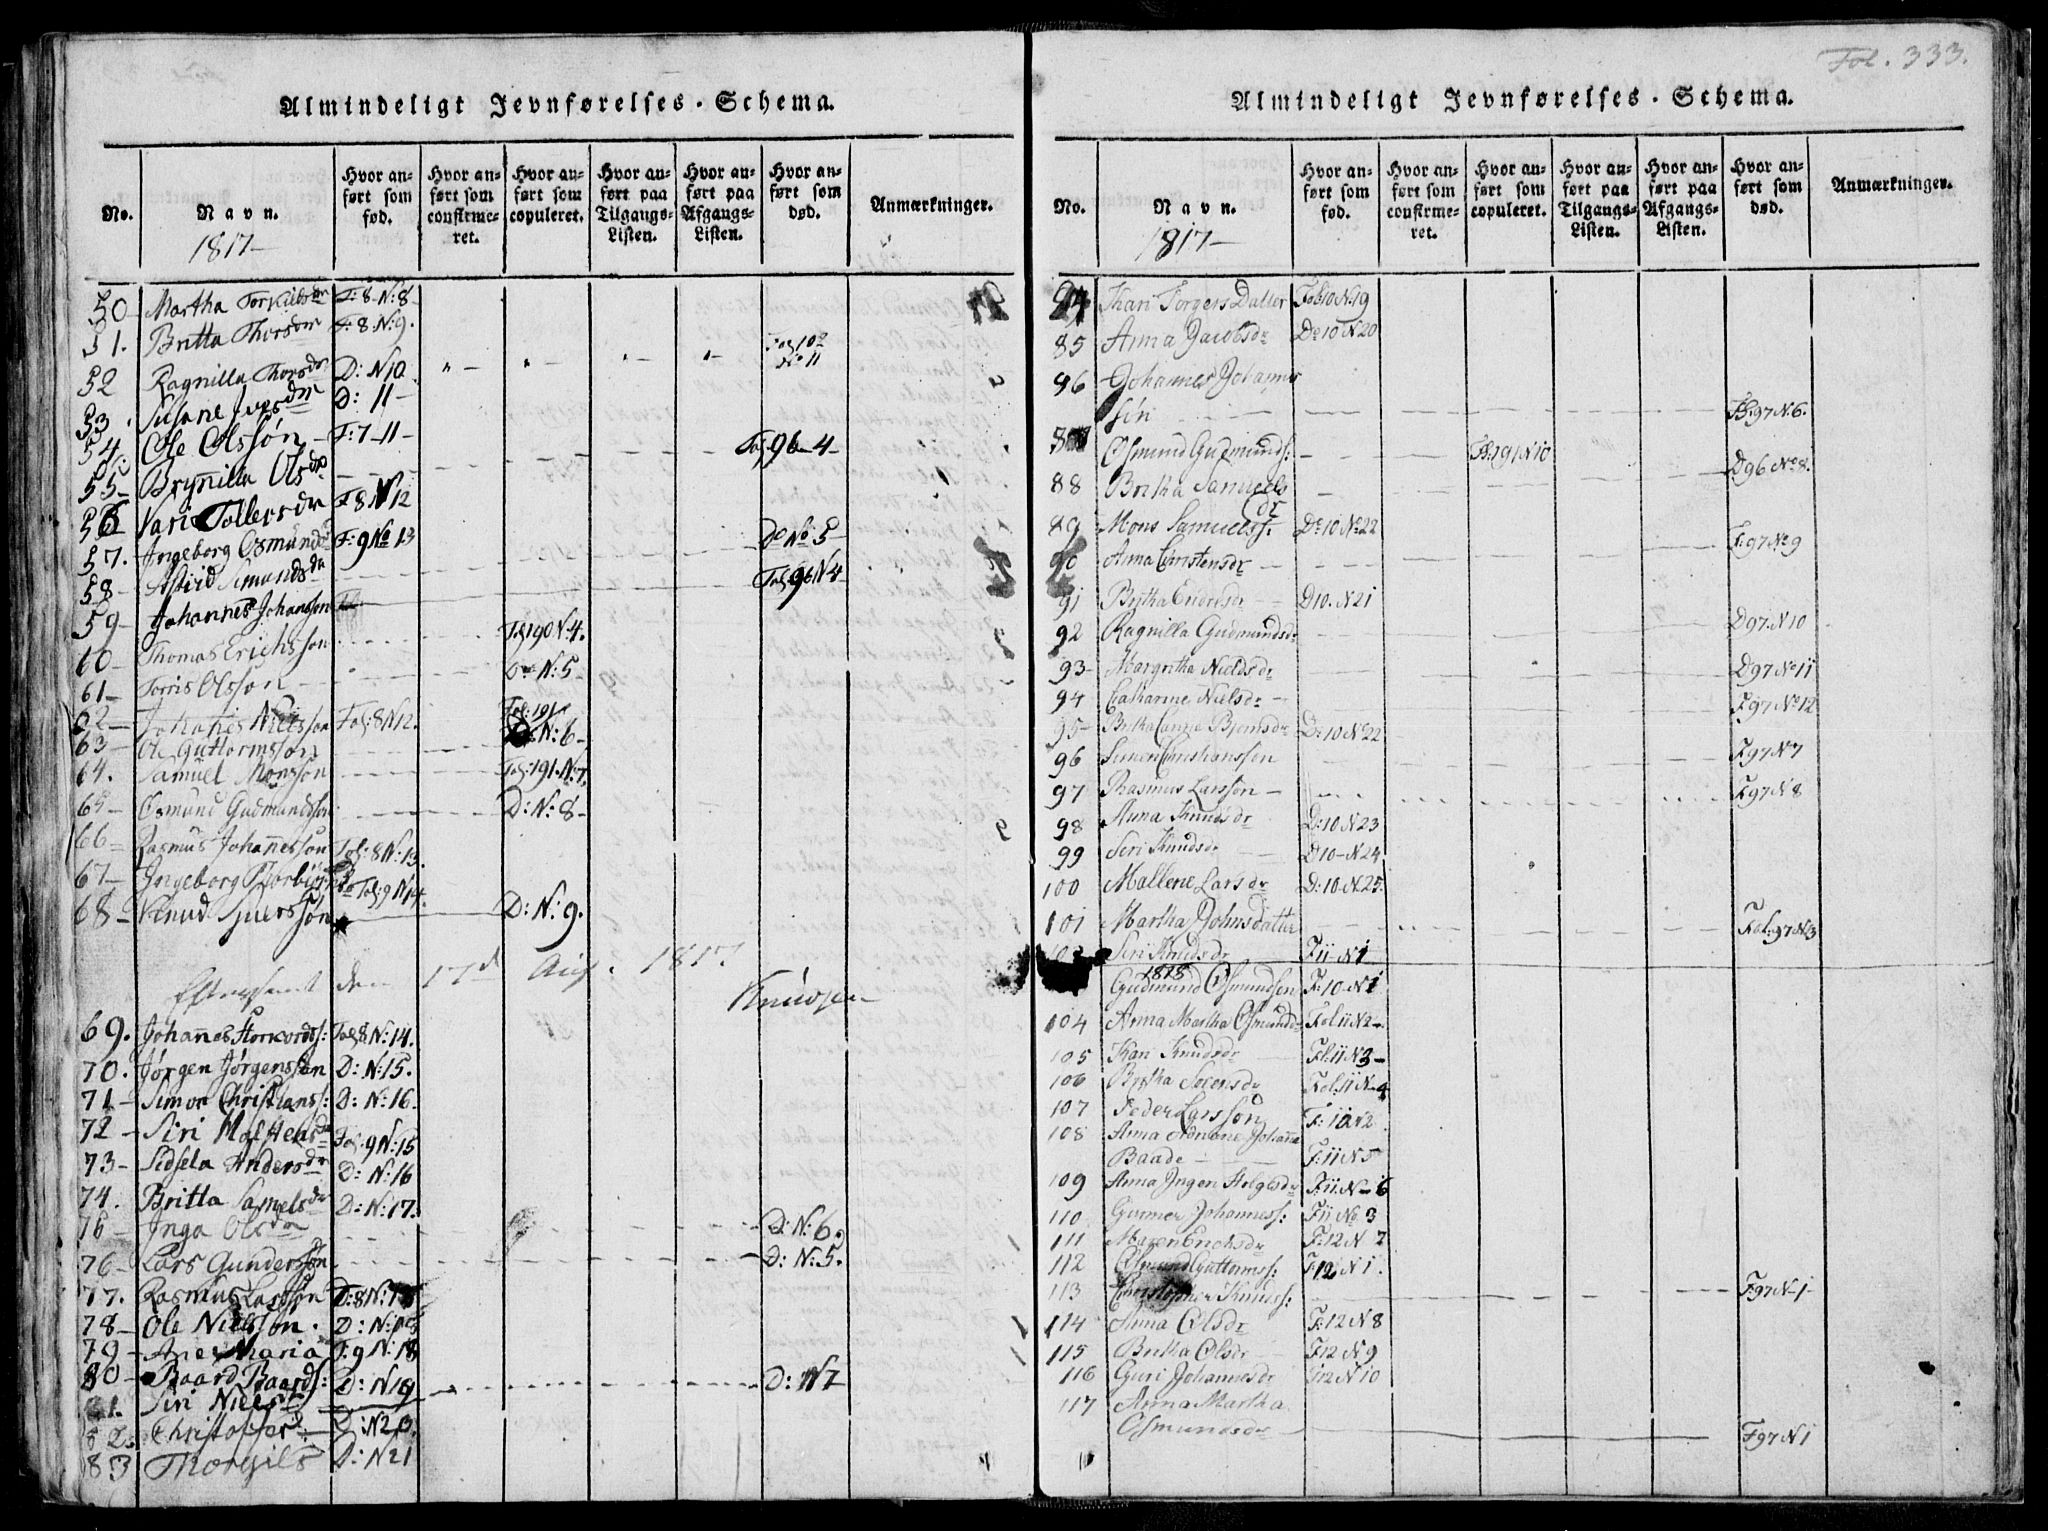 Almindeligt Jevnførelses-Schema.
No. Navn. Hvor anført som fød. Hvor anført som confirmeret. Hvor anført som copuleret. Hvor anført paa Tilgangs-Listen. Hvor anført paa Afgangs-Listen. Hvor anført som død. Anmærkninger.
1817-
50 Martha Torkildsdr F:8-N:8-
51. Britta Thorsdr F:8 N:9.
52 Ragnilla Thorsdr D:N10 " - " - " - " - Fol:102 No 11
53. Susane Iversdr D: 11-
54. Ole Olssøn - F:7-11-
55- Brynilla Olsdr - Fol:96-4-
56 Kari Tollefsdr F8 N12
57. Ingeborg Osmundsdr F:9 No 13
58- Astrid Simundsdr Do No 5-
59- Johannes Johanssøn Fol:96 N4-
60- Thomas Erichssøn Fol:190 N:4.
61- Torris Olssøn - Do N:5-
62- Johanes Nielssøn Fol:8 N12.
63- Ole Guttormssøn Fol:191 D:N:6-
64. Samuel Monssøn Fol:191.N:7.
65- Osmund Gudmundssøn D:N:8-
66- Rasmus Johannessøn Fol:8 N:13.
67- Ingeborg Fol:9 N14.
68- Knud Sjurssøn D:N:9.
den 17d Aug. 1817.
Knudsen
69. Johannes Fol:8 N:14.
70. Jørgen Jørgenssøn D:N:15.
71- Simon Christians: D:N:16.
72- Siri Fol:9 N:15
73- Sidsela Andersdr D:N:16
74. Britta Samelsdr D:N:17.
76- Inga Olsdr D:N:6.
76- Lars Gunderssøn D:N:5.
77. Rasmus Larssøn D:8 N:
78- Ole Nielssøn. D:N:
79- Ane Maria F:9 N:18
80- Baard Baards: D:N19 D:N7
81. Siri Nielsd
82. Christoffer D:N20.
83 Thorgils D:N21
Fol. 333.
Almindeligt Jevnførelses-Schema.
No. Navn. Hvor anført som fød. Hvor anført som confirmeret. Hvor anført som copuleret. Hvor anført paa Tilgangs-Listen. Hvor anført paa Afgangs-Listen. Hvor anført som død. Anmærkninger.
1817-
84 Kari Torgers Datter Fol:10 N:19
85 Anna Jacobsdr Do 10 N20
86 Johannes Johannes
søn F:97 N:6.
87 Osmund Gudmunds: F:191 N10
88 Britha Samuels dr D96 No 8.
89 Mons Samuelss: Do 10 No 22
90 Anna Christensdr F:97 No 9
91 Britha Endresdr D10. N21
92 Ragnilla Gudmundsdr D97. N10
93- Margretha Nielsdr D97 No 11
94 Catharine Nielsdr F97 No 12
95- Britha Canne Bjørnsdr D:10 No 22
96 Simon Christianssøn F97 N7
97 Rasmus Larssøn F97 N8
98 Anna Knudsdr D:10 N23
99 Seri Knudsdr D10-N24
100 Mallene Larsdr D:10.N25.
101 Martha Johnsdatter Fol:97 N13
102 Seri Knudsdr F11-N1
1818
Gudmund Osmundsen F:10-N1
104 Anna Martha Osmundsdr Fol 11 N2-
105 Kari Knudsdr F:11 N3-
106 Britha Sorensdr Fol.11 N-4
107 Peder Larssøn F:10 N2
108 Anna Adriane Johanna
Baade - F:11 N5
109 Anna Inger Helgesdr F:11.N-6
110 Gunner Johanness: F11 No 3
111 Maren Erichsdr F:12 N 7
112 Osmund Guttorms: F12 N1.
113 Christopher Knuds: F97 N-1-
114 Anna Olsdr F:12 N8
115 Britha Olsdr F12 N9
116 Guri Johannesdr F12 N10
117 Anna Martha
Osmundsdr F97 N1